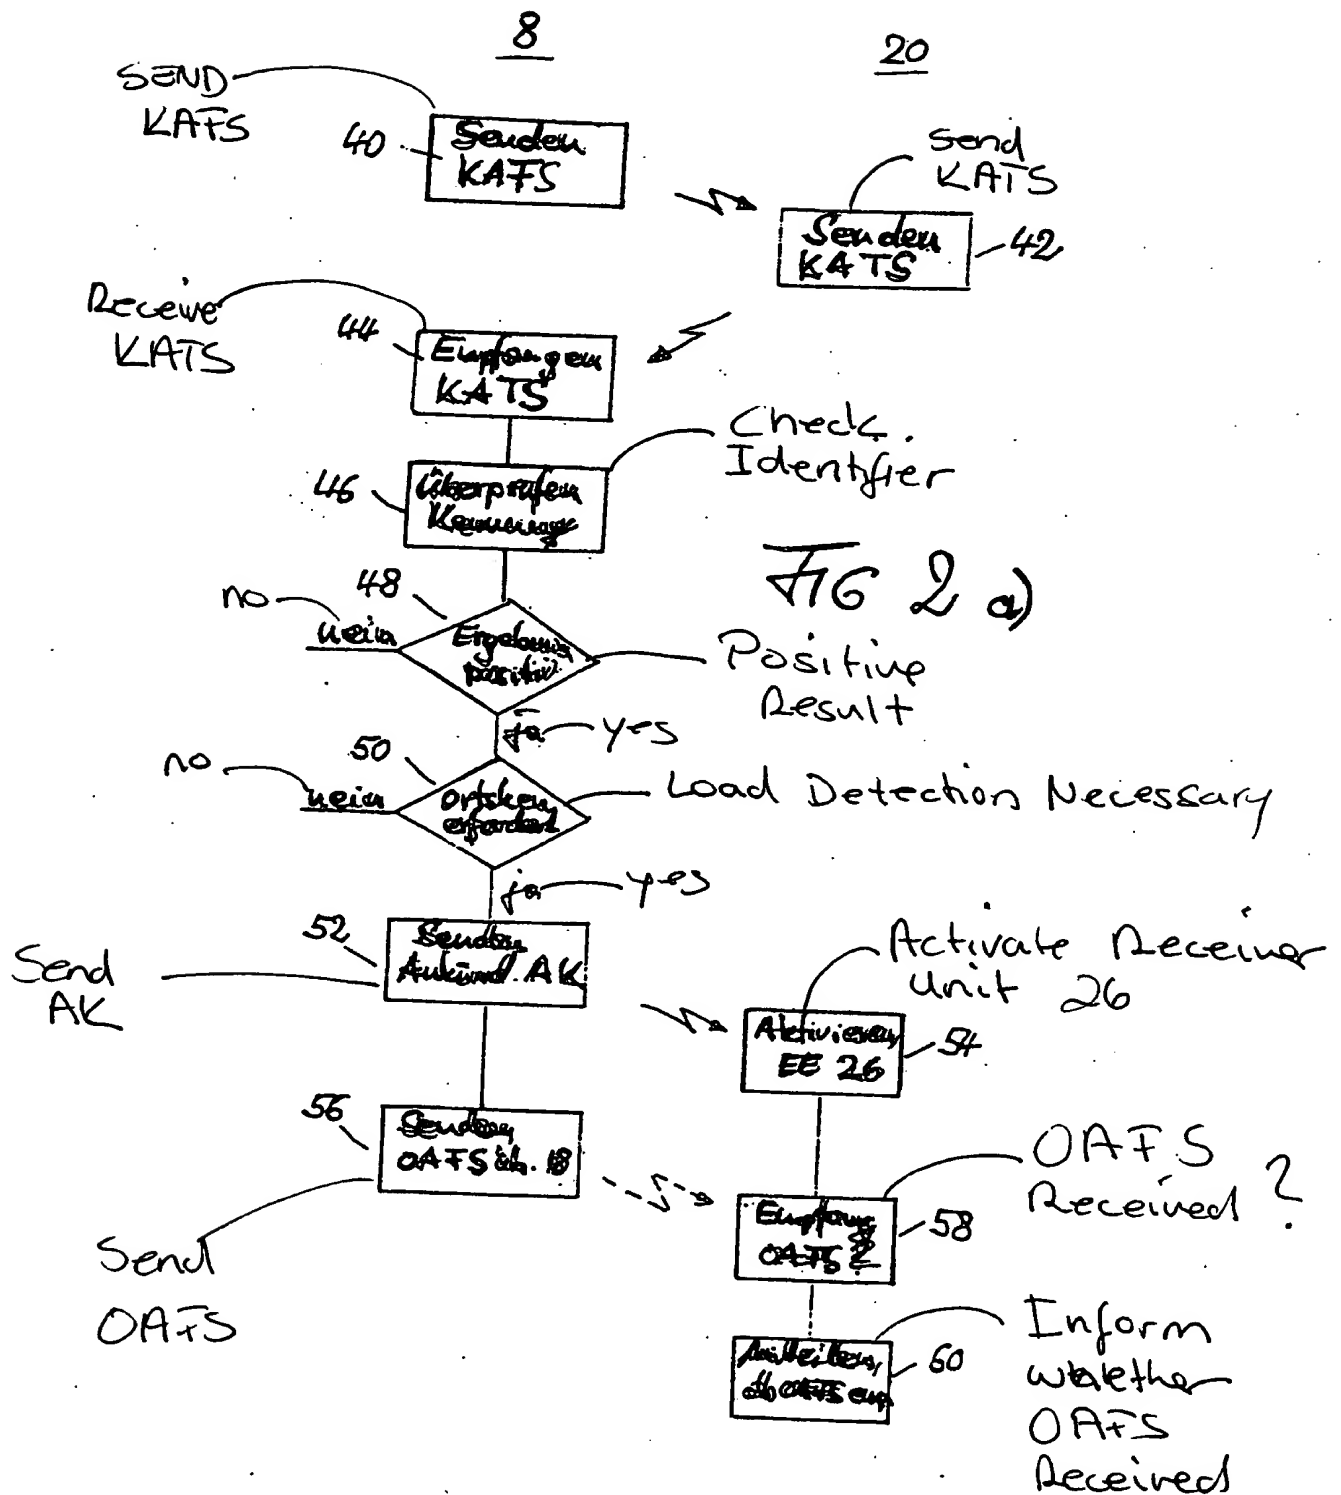 8
20
SEND
KAFS
40
Senden
KAFS
send
KATS
Senden
KATS
42
Receive
KATS
44
Empfangen
KATS
Check
Identifier
46
Überprüfen
Kennung
FIG 2 a)
48
no
nein
Ergebnis
positiv?
Positive
Result
ja
yes
50
no
nein
ortsken
erforderl.
Load Detection Necessary
ja
yes
52
Senden
Ankünd. AK
Send
AK
Activate Receiver
Unit 26
Aktivieren
EE 26
54
56
Senden
OAFS üb. 18
Send
OAFS
OAFS
Received ?
Empfang
OAFS ?
58
Inform
whether
OAFS
Received
Mitteilen,
ob OAFS emp
60